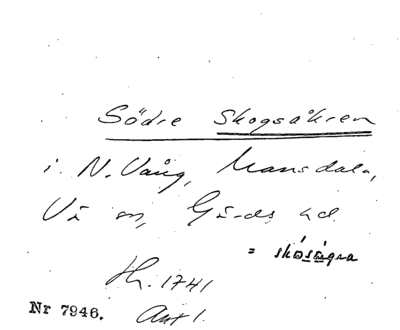 Södre Skogsåkren
i N. Vång, Mansdala,
Vå sn, Gärds hd
= skósågra
Hr. 1741
Nr 7946. Akt 1.